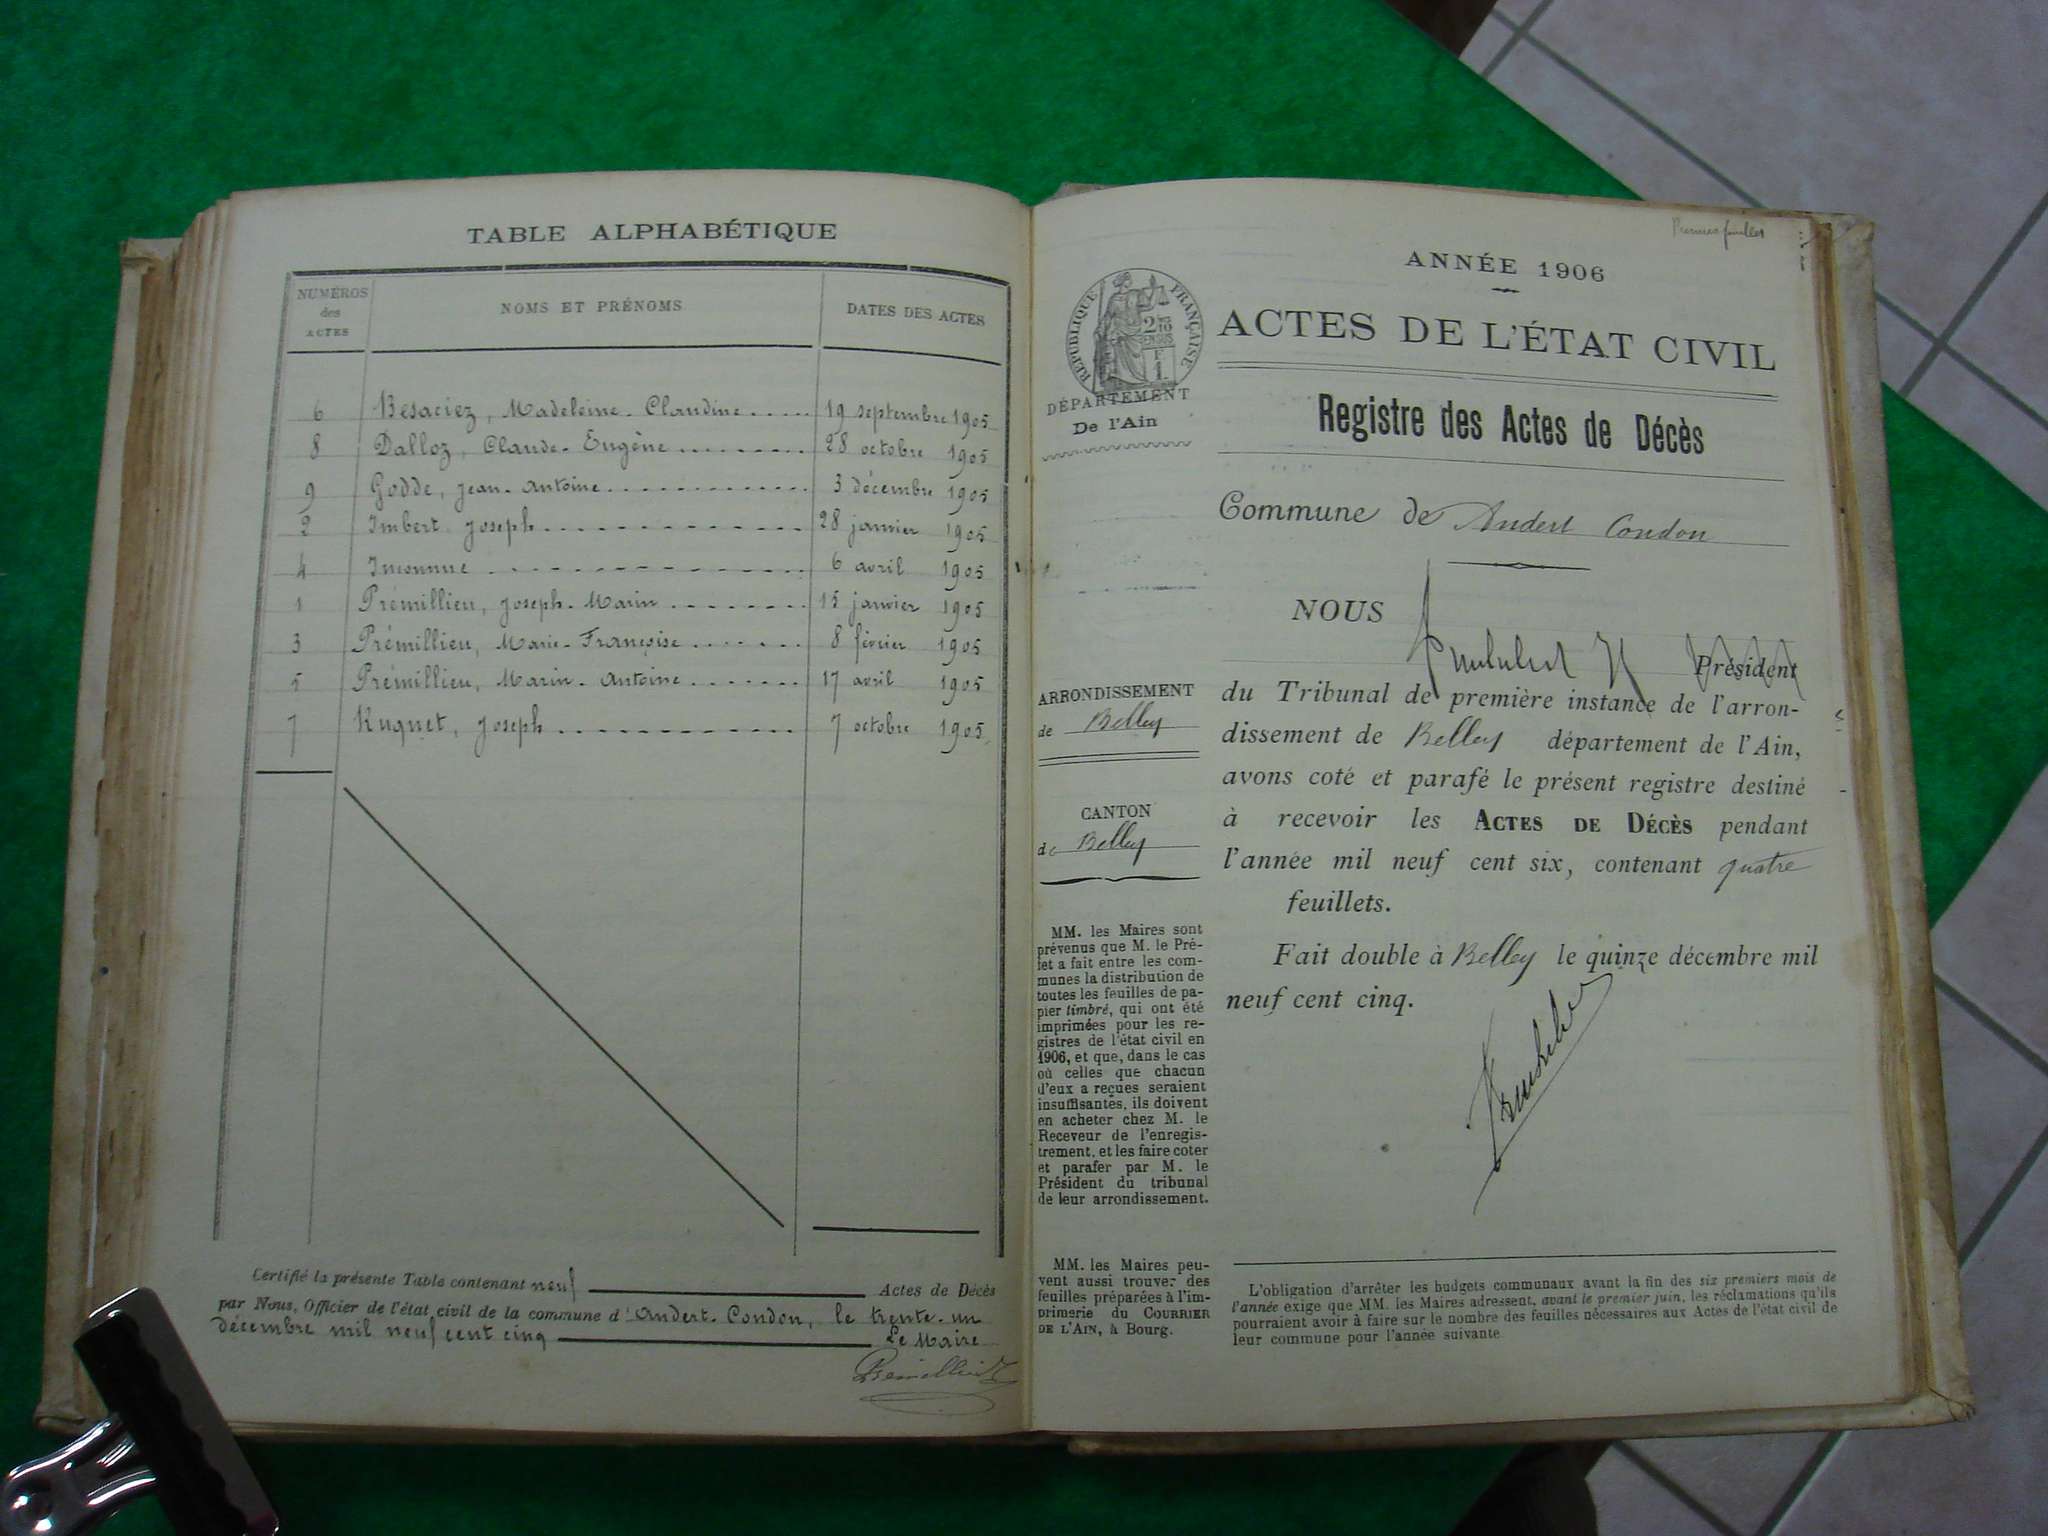 TABLE ALPHABÉTIQUE
NUMÉROS des ACTES NOMS ET PRÉNOMS DATES DES ACTES
6 Besaciez, Madeleine-Claudine..... 19 septembre 1905
8 Dalloz, Claude-Eugène......... 28 octobre 1905
9 Godde, Jean-Antoine............ 3 décembre 1905
2 Imbert Joseph............... 28 janvier 1905
4 Inconnue............... 6 avril 1905
1 Prémillieu, Joseph-Marin........ 15 janvier 1905
3 Prémillieu, Marie-Françoise....... 8 février 1905
5 Prémillieu, Marin-Antoine....... 17 avril 1905
7 Ruquet, Joseph............. 7 octobre 1905
Certifié la présente Table contenant neuf Actes de Décès
par Nous, Officier de l'état civil de la commune d'Andert-Condon, le trente-un
décembre mil neuf cent cinq Le Maire
Premiers feuillet
ANNÉE 1906
RÉPUBLIQUE FRANÇAISE
2/10 EN SUS
F 1
DÉPARTEMENT
De l'Ain
ACTES DE L'ÉTAT CIVIL
Registre des Actes de Décès
Commune de Andert Condon
NOUS
Président
du Tribunal de première instance de l'arron-
dissement de Belley département de l'Ain,
avons coté et parafé le présent registre destiné
à recevoir les ACTES DE DÉCÈS pendant
l'année mil neuf cent six, contenant quatre
feuillets.
Fait double à Belley le quinze décembre mil
neuf cent cinq.
ARRONDISSEMENT
de Belley
CANTON
de Belley
MM. les Maires sont
prévenus que M. le Pré-
fet a fait entre les com-
munes la distribution de
toutes les feuilles de pa-
pier timbré, qui ont été
imprimées pour les re-
gistres de l'état civil en
1906, et que, dans le cas
où celles que chacun
d'eux a reçues seraient
insuffisantes, ils doivent
en acheter chez M. le
Receveur de l'enregis-
trement, et les faire coter
et parafer par M. le
Président du tribunal
de leur arrondissement.
MM. les Maires peu-
vent aussi trouver des
feuilles préparées à l'im-
primerie du COURRIER
DE L'AIN, à Bourg.
L'obligation d'arrêter les budgets communaux avant la fin des six premiers mois de
l'année exige que MM. les Maires adressent, avant le premier juin, les réclamations qu'ils
pourraient avoir à faire sur le nombre des feuilles nécessaires aux Actes de l'état civil de
leur commune pour l'année suivante